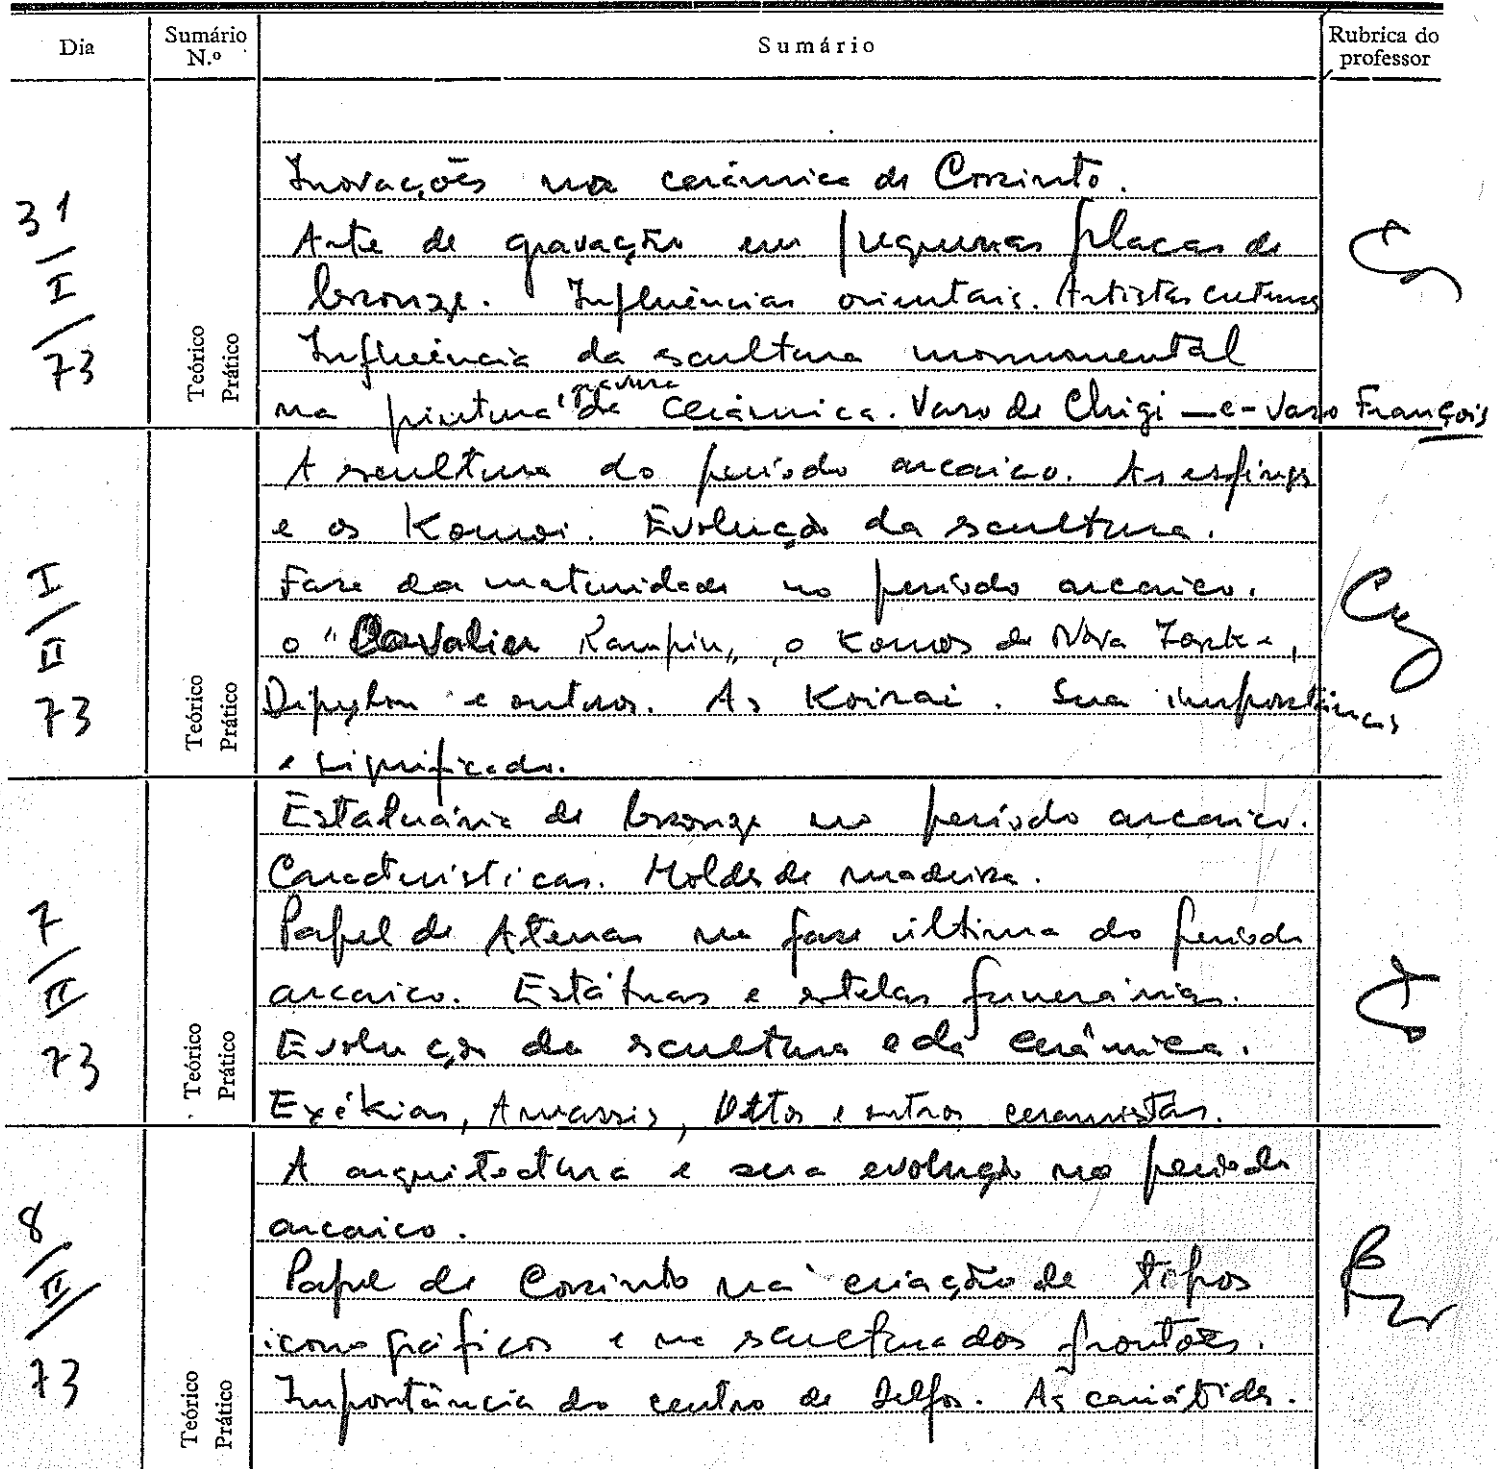 Dia
Sumário N.º
Sumário
Rubrica do professor
31
I
73
Teórico
Prático
Inovações na cerâmica de Corinto.
Arte de gravação em pequenas placas de
bronze. Influências orientais. Artistas
Influência da escultura monumental
gravura
na pintura da cerâmica. Vaso de Chigi - e - Vaso François
I
II
73
Teórico
Prático
A escultura do período arcaico. As esfinges
e os Kouroi. Evolução da escultura.
Fase da maturidade no período arcaico.
o "Cavalier Rampin", o Kouros de Nova Iorke,
Dipylon e outros. As Korai. Sua importância
e significado.
7
II
73
Teórico
Prático
Estatuária de bronze no período arcaico.
Características. Moldes de madeira.
Papel de Atenas na fase última do período
arcaico. Estátuas e estelas funerárias.
Evolução da escultura e da cerâmica.
Exékias, Amassis, e outros ceramistas.
8
II
73
Teórico
Prático
A arquitectura e sua evolução no período
arcaico.
Papel de Corinto na criação de tipos
iconográficos e na escultura dos frontões.
Importância do centro de Delfos. As cariátides.